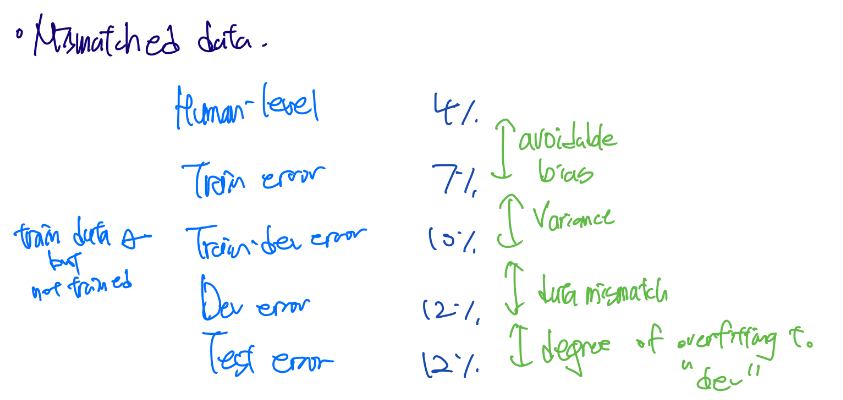 • Mismatched data.
Human-level 4%
avoidable
bias
Train error 7%
Variance
train data
but
not trained
Train-dev error 10%
data mismatch
Dev error 12%
degree of overfitting t.
"dev"
Test error 12%